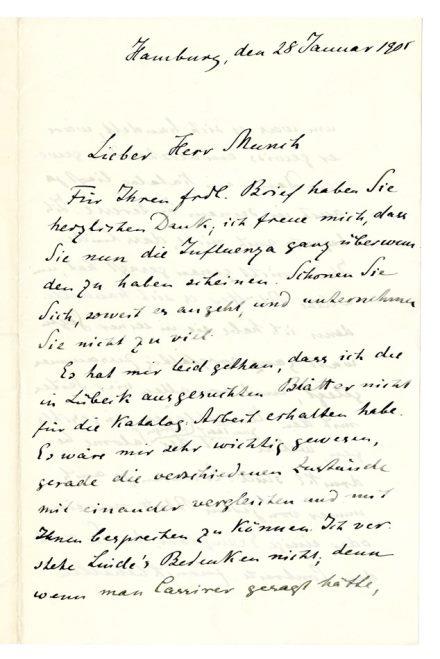 Hamburg, den 28 Januar 1905
Lieber Herr Munch
Für Ihren frdl. Brief haben Sie
herzlichen Dank; ich freue mich, dass
Sie nun die Influenza ganz überwun
den zu haben scheinen. Schonen Sie
Sich, soweit es angeht, und unternehmen
Sie nicht zu viel.
Es hat mir leid gethan, dass ich die
in Lübeck ausgesuchten Blätter nicht
für die Katalog-Arbeit erhalten habe.
Es wäre mir sehr wichtig gewesen,
gerade die verschiedenen Zustände
mit einander vergleichen und mit
Ihnen besprechen zu können. Ich ver
stehe Linde's Bedenken nicht; denn
wenn man Cassirer gesagt hätte,